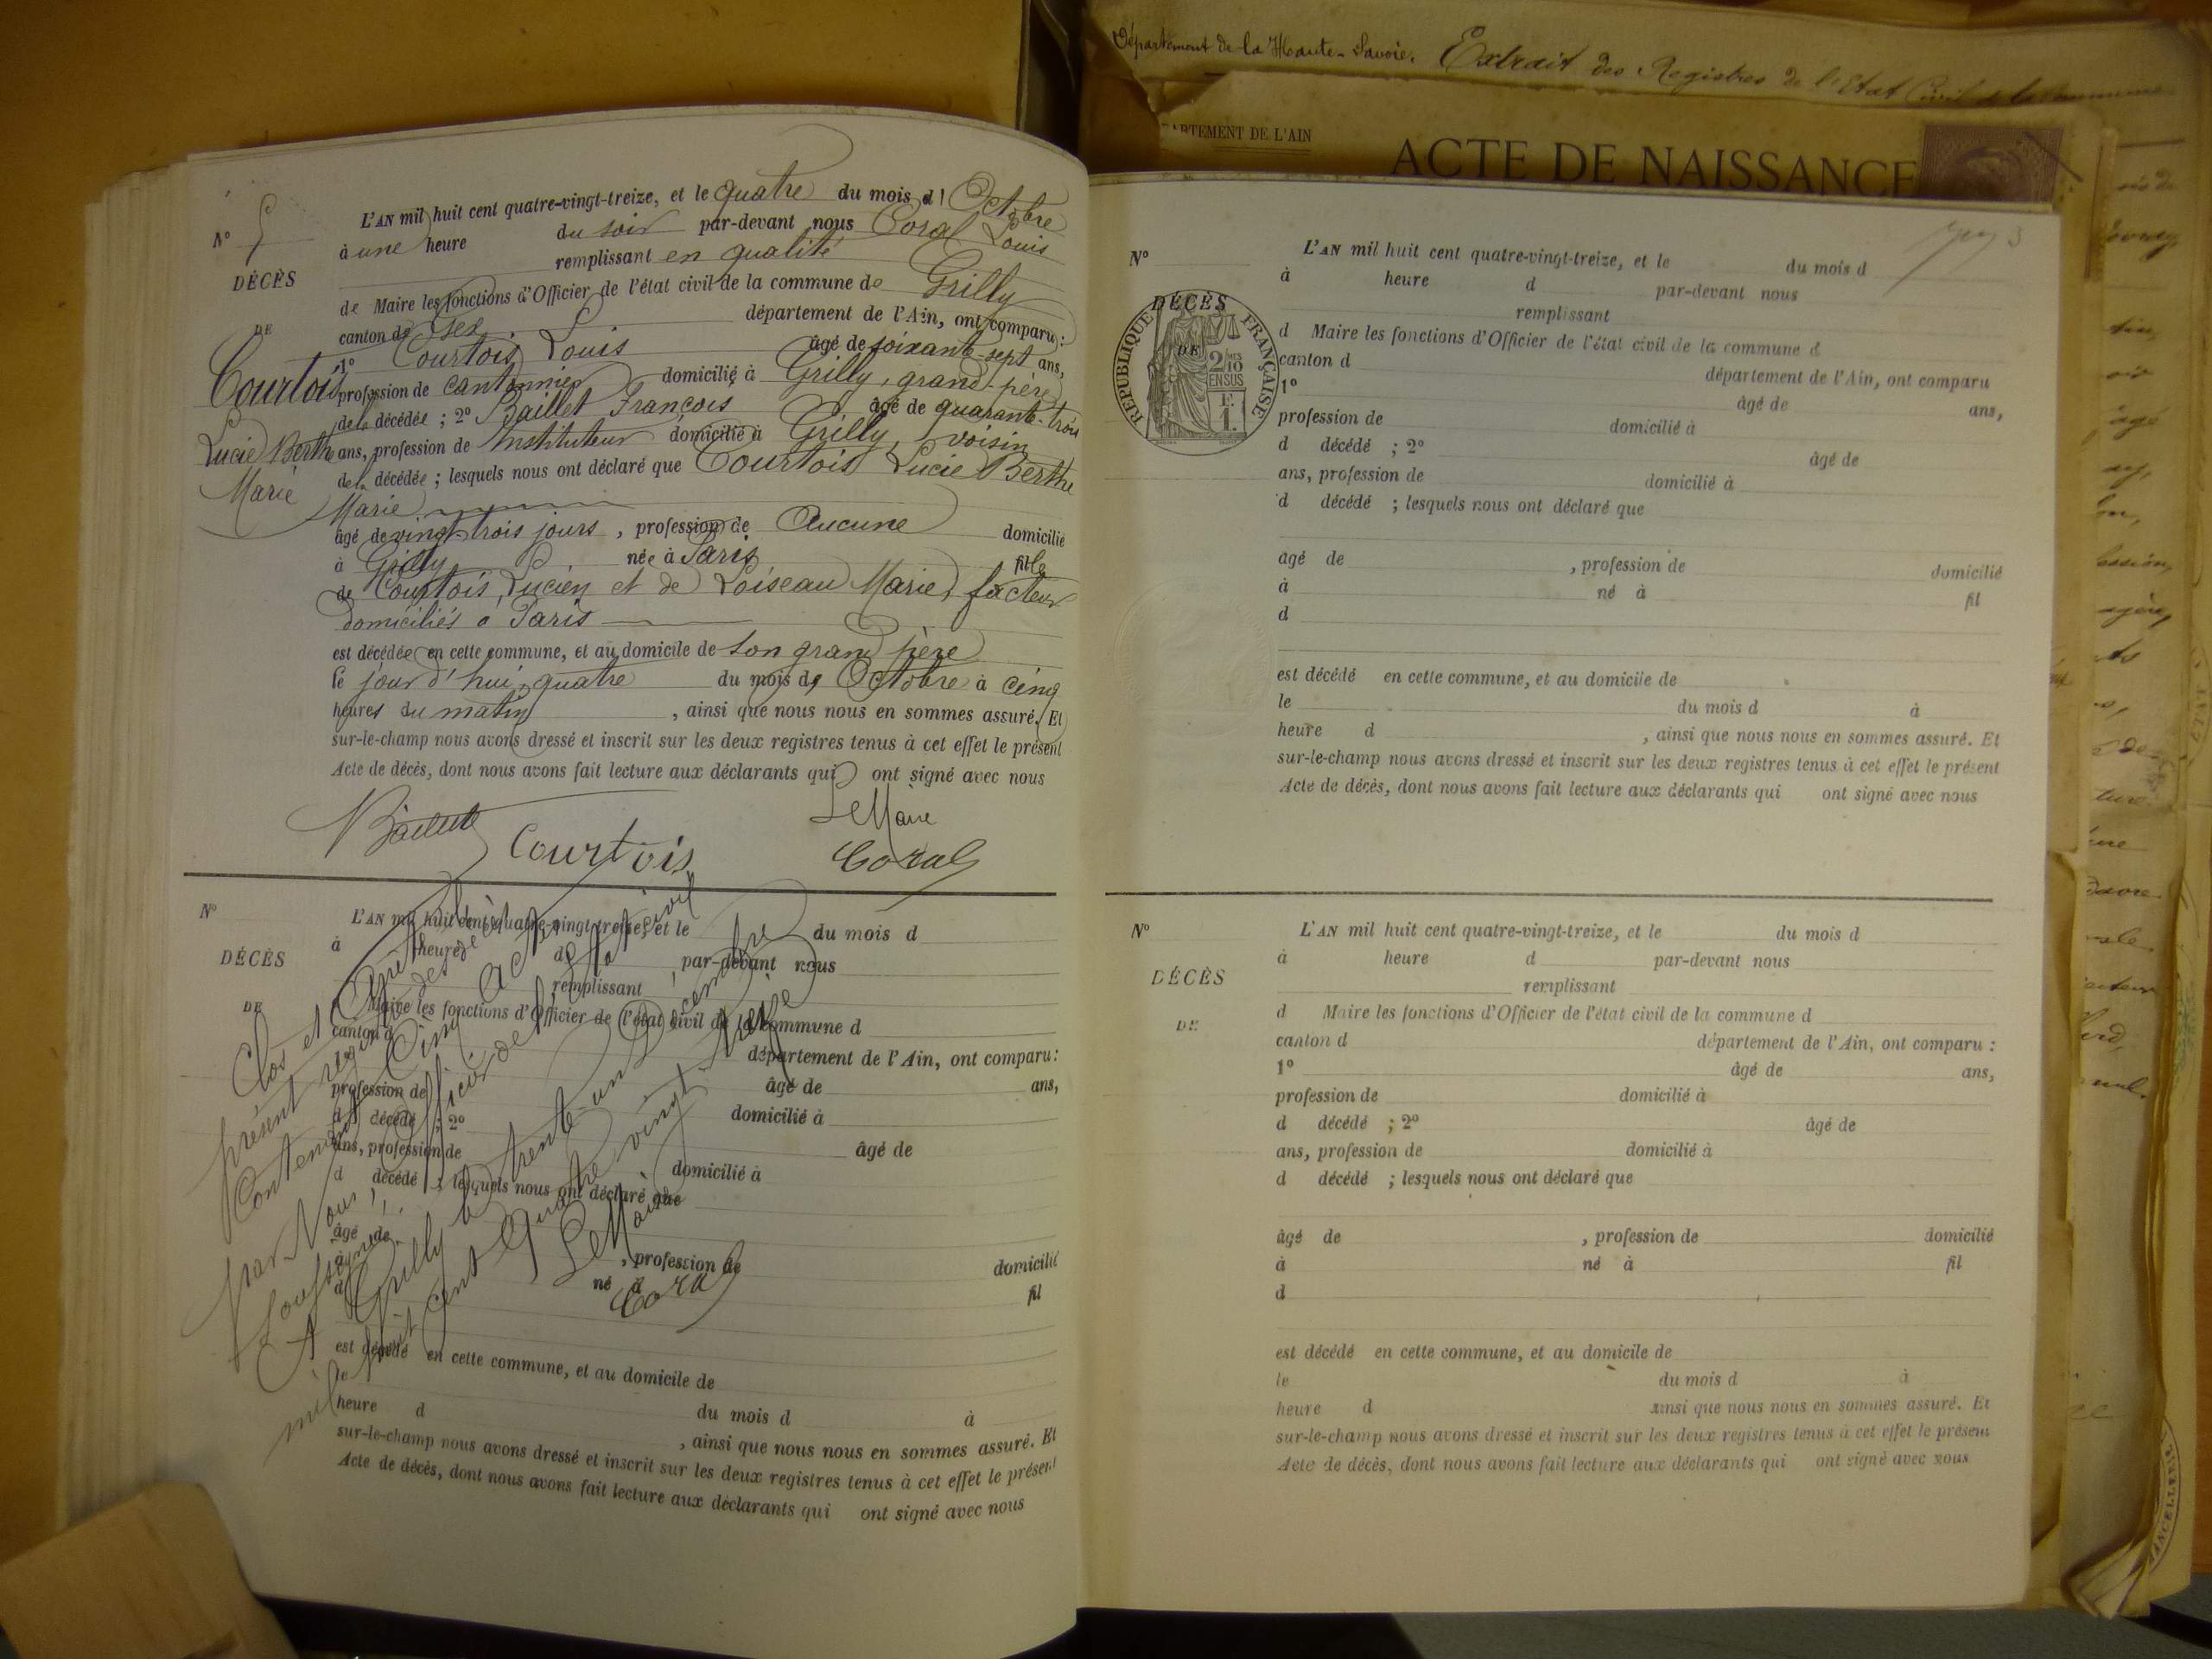 Département de la Haute-Savoie. Extrait des Registres de l'Etat Civil de la commune
DEPARTEMENT DE L'AIN
ACTE DE NAISSANCE
N° 5
DÉCÈS
DE
Courtois
Lucie Berthe
Marie
L'AN mil huit cent quatre-vingt-treize, et le quatre du mois d'Octobre
à une heure du soir par-devant nous Coral Louis
remplissant en qualité
de Maire les fonctions d'Officier de l'état civil de la commune de Grilly
canton de Gex département de l'Ain, ont comparu :
1° Courtois Louis âgé de soixante-sept ans,
profession de cantonnier domicilié à Grilly, grand-père
de la décédée ; 2° Baillet François âgé de quarante-trois
ans, profession de Instituteur domicilié à Grilly, voisin
de la décédée ; lesquels nous ont déclaré que Courtois Lucie Berthe
Marie
âgé de vingt-trois jours, profession de Aucune domicilié
à Grilly née à Paris fille
de Courtois, Lucien et de Loiseau Marie, facteur
domiciliés à Paris
est décédée en cette commune, et au domicile de son grand père
le jour d'hui quatre du mois de Octobre à cinq
heures du matin, ainsi que nous nous en sommes assuré. Et
sur-le-champ nous avons dressé et inscrit sur les deux registres tenus à cet effet le présent
Acte de décès, dont nous avons fait lecture aux déclarants qui ont signé avec nous
Le Maire
Baillet Courtois Coral
N°
DÉCÈS
DE
L'AN mil huit cent quatre-vingt-treize, et le du mois d
à heure d par-devant nous
remplissant
d Maire les fonctions d'Officier de l'état civil de la commune d
canton d
département de l'Ain, ont comparu :
âgé de ans,
profession de domicilié à
d décédé ; 2° âgé de
ans, profession de domicilié à
d décédé ; lesquels nous ont déclaré que
âgé de , profession de domicilié
à né à fil
d
est décédé en cette commune, et au domicile de
le du mois d à
heure d , ainsi que nous nous en sommes assuré. Et
sur-le-champ nous avons dressé et inscrit sur les deux registres tenus à cet effet le présent
Acte de décès, dont nous avons fait lecture aux déclarants qui ont signé avec nous
Clos et Arrêté le
présent registre des décès
Contenant Cinq Actes
par Nous, Officier de l'état civil
soussigné.
A Grilly le trente-un Décembre
mil huit cent quatre vingt treize
Le Maire
Coral
3
N°
DÉCÈS
DE
RÉPUBLIQUE FRANÇAISE
2/10 EN SUS
F. 1.
L'AN mil huit cent quatre-vingt-treize, et le du mois d
à heure d par-devant nous
remplissant
d Maire les fonctions d'Officier de l'état civil de la commune d
canton d département de l'Ain, ont comparu
1° âgé de ans,
profession de domicilié à
d décédé ; 2° âgé de
ans, profession de domicilié à
d décédé ; lesquels nous ont déclaré que
âgé de , profession de domicilié
à né à fil
d
est décédé en cette commune, et au domicile de
le du mois d à
heure d , ainsi que nous nous en sommes assuré. Et
sur-le-champ nous avons dressé et inscrit sur les deux registres tenus à cet effet le présent
Acte de décès, dont nous avons fait lecture aux déclarants qui ont signé avec nous
N°
DÉCÈS
DE
L'AN mil huit cent quatre-vingt-treize, et le du mois d
à heure d par-devant nous
remplissant
d Maire les fonctions d'Officier de l'état civil de la commune d
canton d département de l'Ain, ont comparu :
1° âgé de ans,
profession de domicilié à
d décédé ; 2° âgé de
ans, profession de domicilié à
d décédé ; lesquels nous ont déclaré que
âgé de , profession de domicilié
à né à fil
d
est décédé en cette commune, et au domicile de
le du mois d à
heure d ainsi que nous nous en sommes assuré. Et
sur-le-champ nous avons dressé et inscrit sur les deux registres tenus à cet effet le présent
Acte de décès, dont nous avons fait lecture aux déclarants qui ont signé avec nous